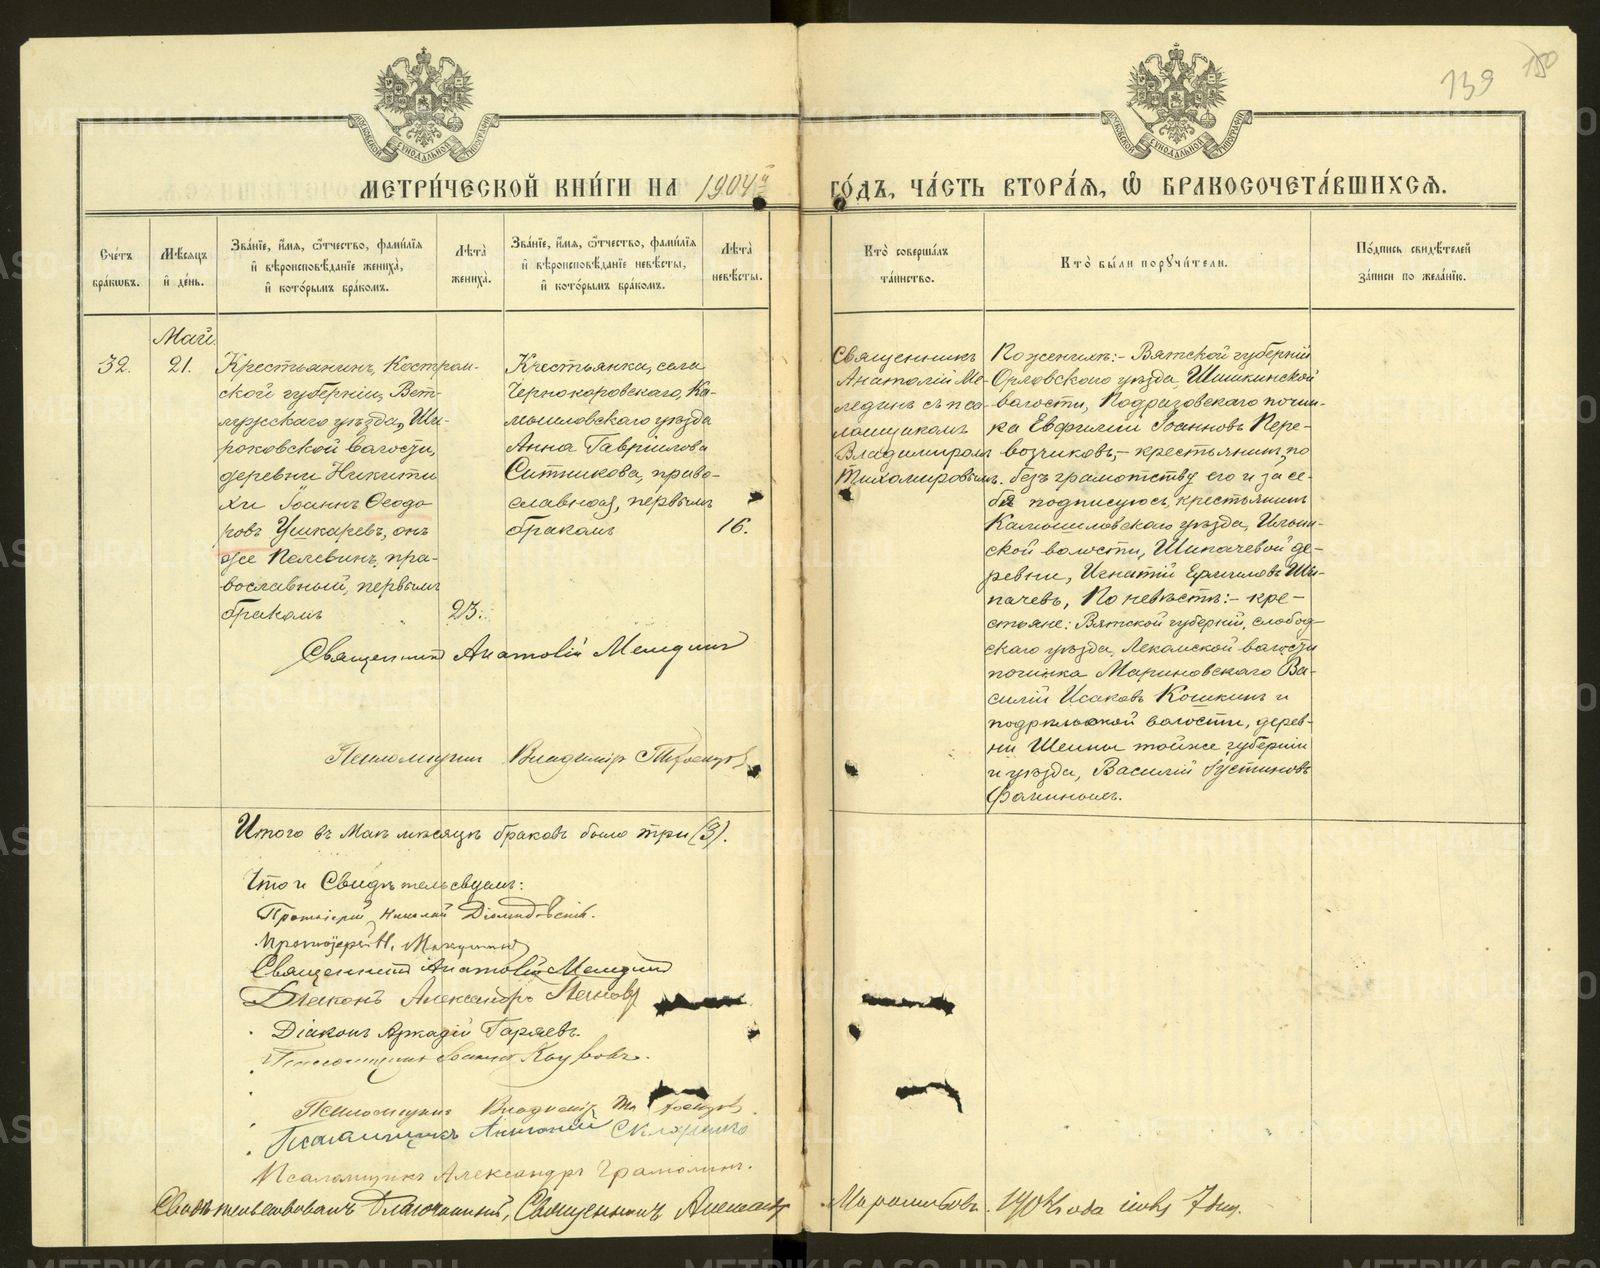 139
150
МЕТРИ́ЧЕСКОЙ КНИ́ГИ НА 1904й ГО́ДЪ, ЧА́СТЬ ВТОРА́Я, Ѡ БРАКОСОЧЕТА́ВШИХСЯ.
Сче́тъ бра́кωвъ.
Мѣ́сяцъ и де́нь.
Зва́нїе, и́мя, ѻ́тчество, фами́лїя и вѣроисповѣ́данїе жениха̀, и кото́рымъ бра́комъ.
Лѣта̀ жениха̀.
Зва́нїе, и́мя, ѻ́тчество, фами́лїя и вѣроисповѣ́данїе невѣ́сты, и кото́рымъ бра́комъ.
Лѣта̀ невѣ́сты.
Кто̀ соверша́лъ та́инство.
Кто̀ бы́ли поручи́тели.
По́дпись свидѣ́телей за́писи по жела́нїю.
Май.
32.
21.
Крестьянинъ, Костром-
ской губерніи, Вет-
лужскаго уѣзда, Ши-
роковской волости,
деревни Никити
хи Іоаннъ Ѳеодо
ровъ Ушкаревъ, онъ
же Пелевинъ, пра-
вославный, первымъ
бракомъ
23.
Крестьянка, села
Чернокоровскаго, Ка-
мышловскаго уѣзда
Анна Гавріилова
Ситникова, право-
славная, первымъ
бракомъ
16.
Священникъ
Анатолій Ме-
лединъ съ пса-
ломщикомъ
Владимиромъ
Тихомировымъ.
По женихѣ:- Вятской губерніи
Орловскаго уѣзда, Шишкинской
волости, Подразовскаго почин-
ка Евфимій Іоанновъ Пере-
возчиковъ,- крестьянинъ, по
безграмотству его и за се-
бя подписуюсь, крестьянинъ
Камышловскаго уѣзда, Ильин-
ской волости, Шипачевой де-
ревни, Игнатій Ермиловъ Ши-
пачевъ, По невѣстѣ:- кре-
стьяне: Вятской губерніи, слобод-
скаго уѣзда, Лекомской волости
починка Мариновскаго Ва-
силій Исаковъ Кошкинъ и
волости, дерев-
ни тойже губерніи
и уѣзда, Василій Іустиновъ
Фоминыхъ.
Священникъ Анатолій Мелединъ
Псаломщикъ Владиміръ Тихомировъ
Итого въ Маѣ мѣсяцѣ браковъ было три (3).
Что и Свидѣтельсвуемъ:
Протоіерей Николай Діомидовскій.
Протоіерей Н.
Священникъ Анатолій Мелединъ
Діаконъ Александръ
Діаконъ Аркадій Гаряевъ.
Псаломщикъ Іоаннъ
Псаломщикъ Владиміръ Тихомировъ
Псаломщикъ Антоній
Псаломщикъ Александръ Грамолинъ.
Свидѣтельствовалъ Благочинный, Священникъ Александръ 1904 года іюня 7 дня.
METRIKI.GASO-URAL.RU